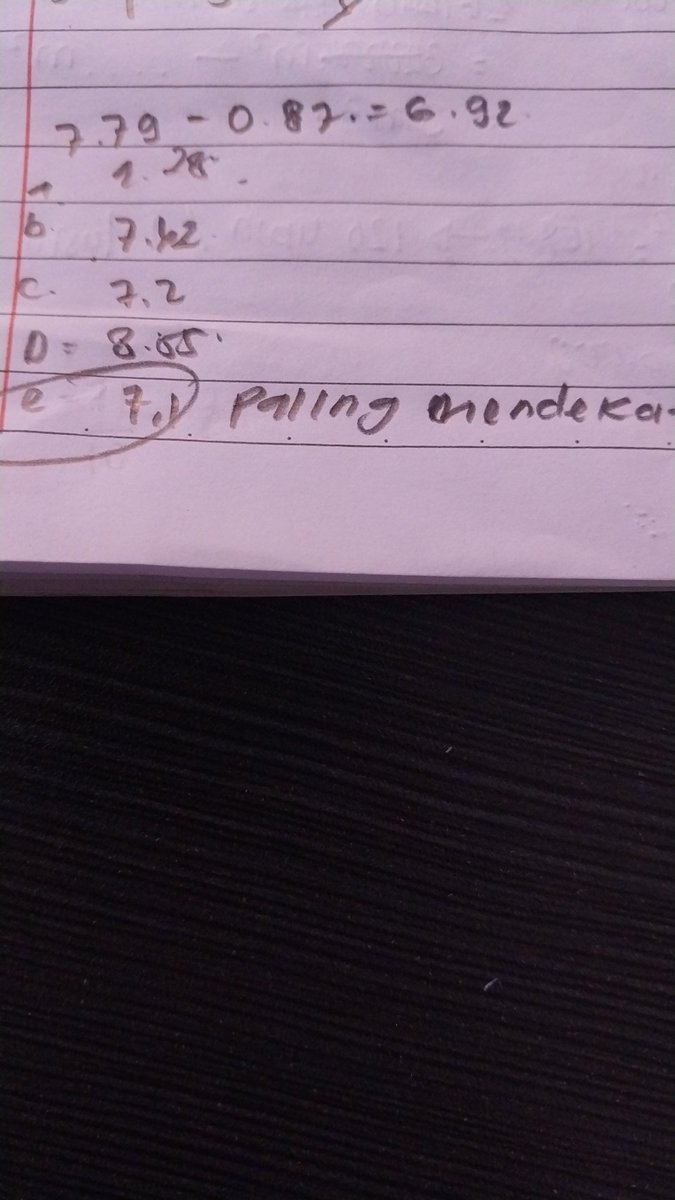 7.79 - 0.87. = 6.92
1.28
b. 7.42
c. 7.2
D = 8.55
e 7,1 paling mendeka